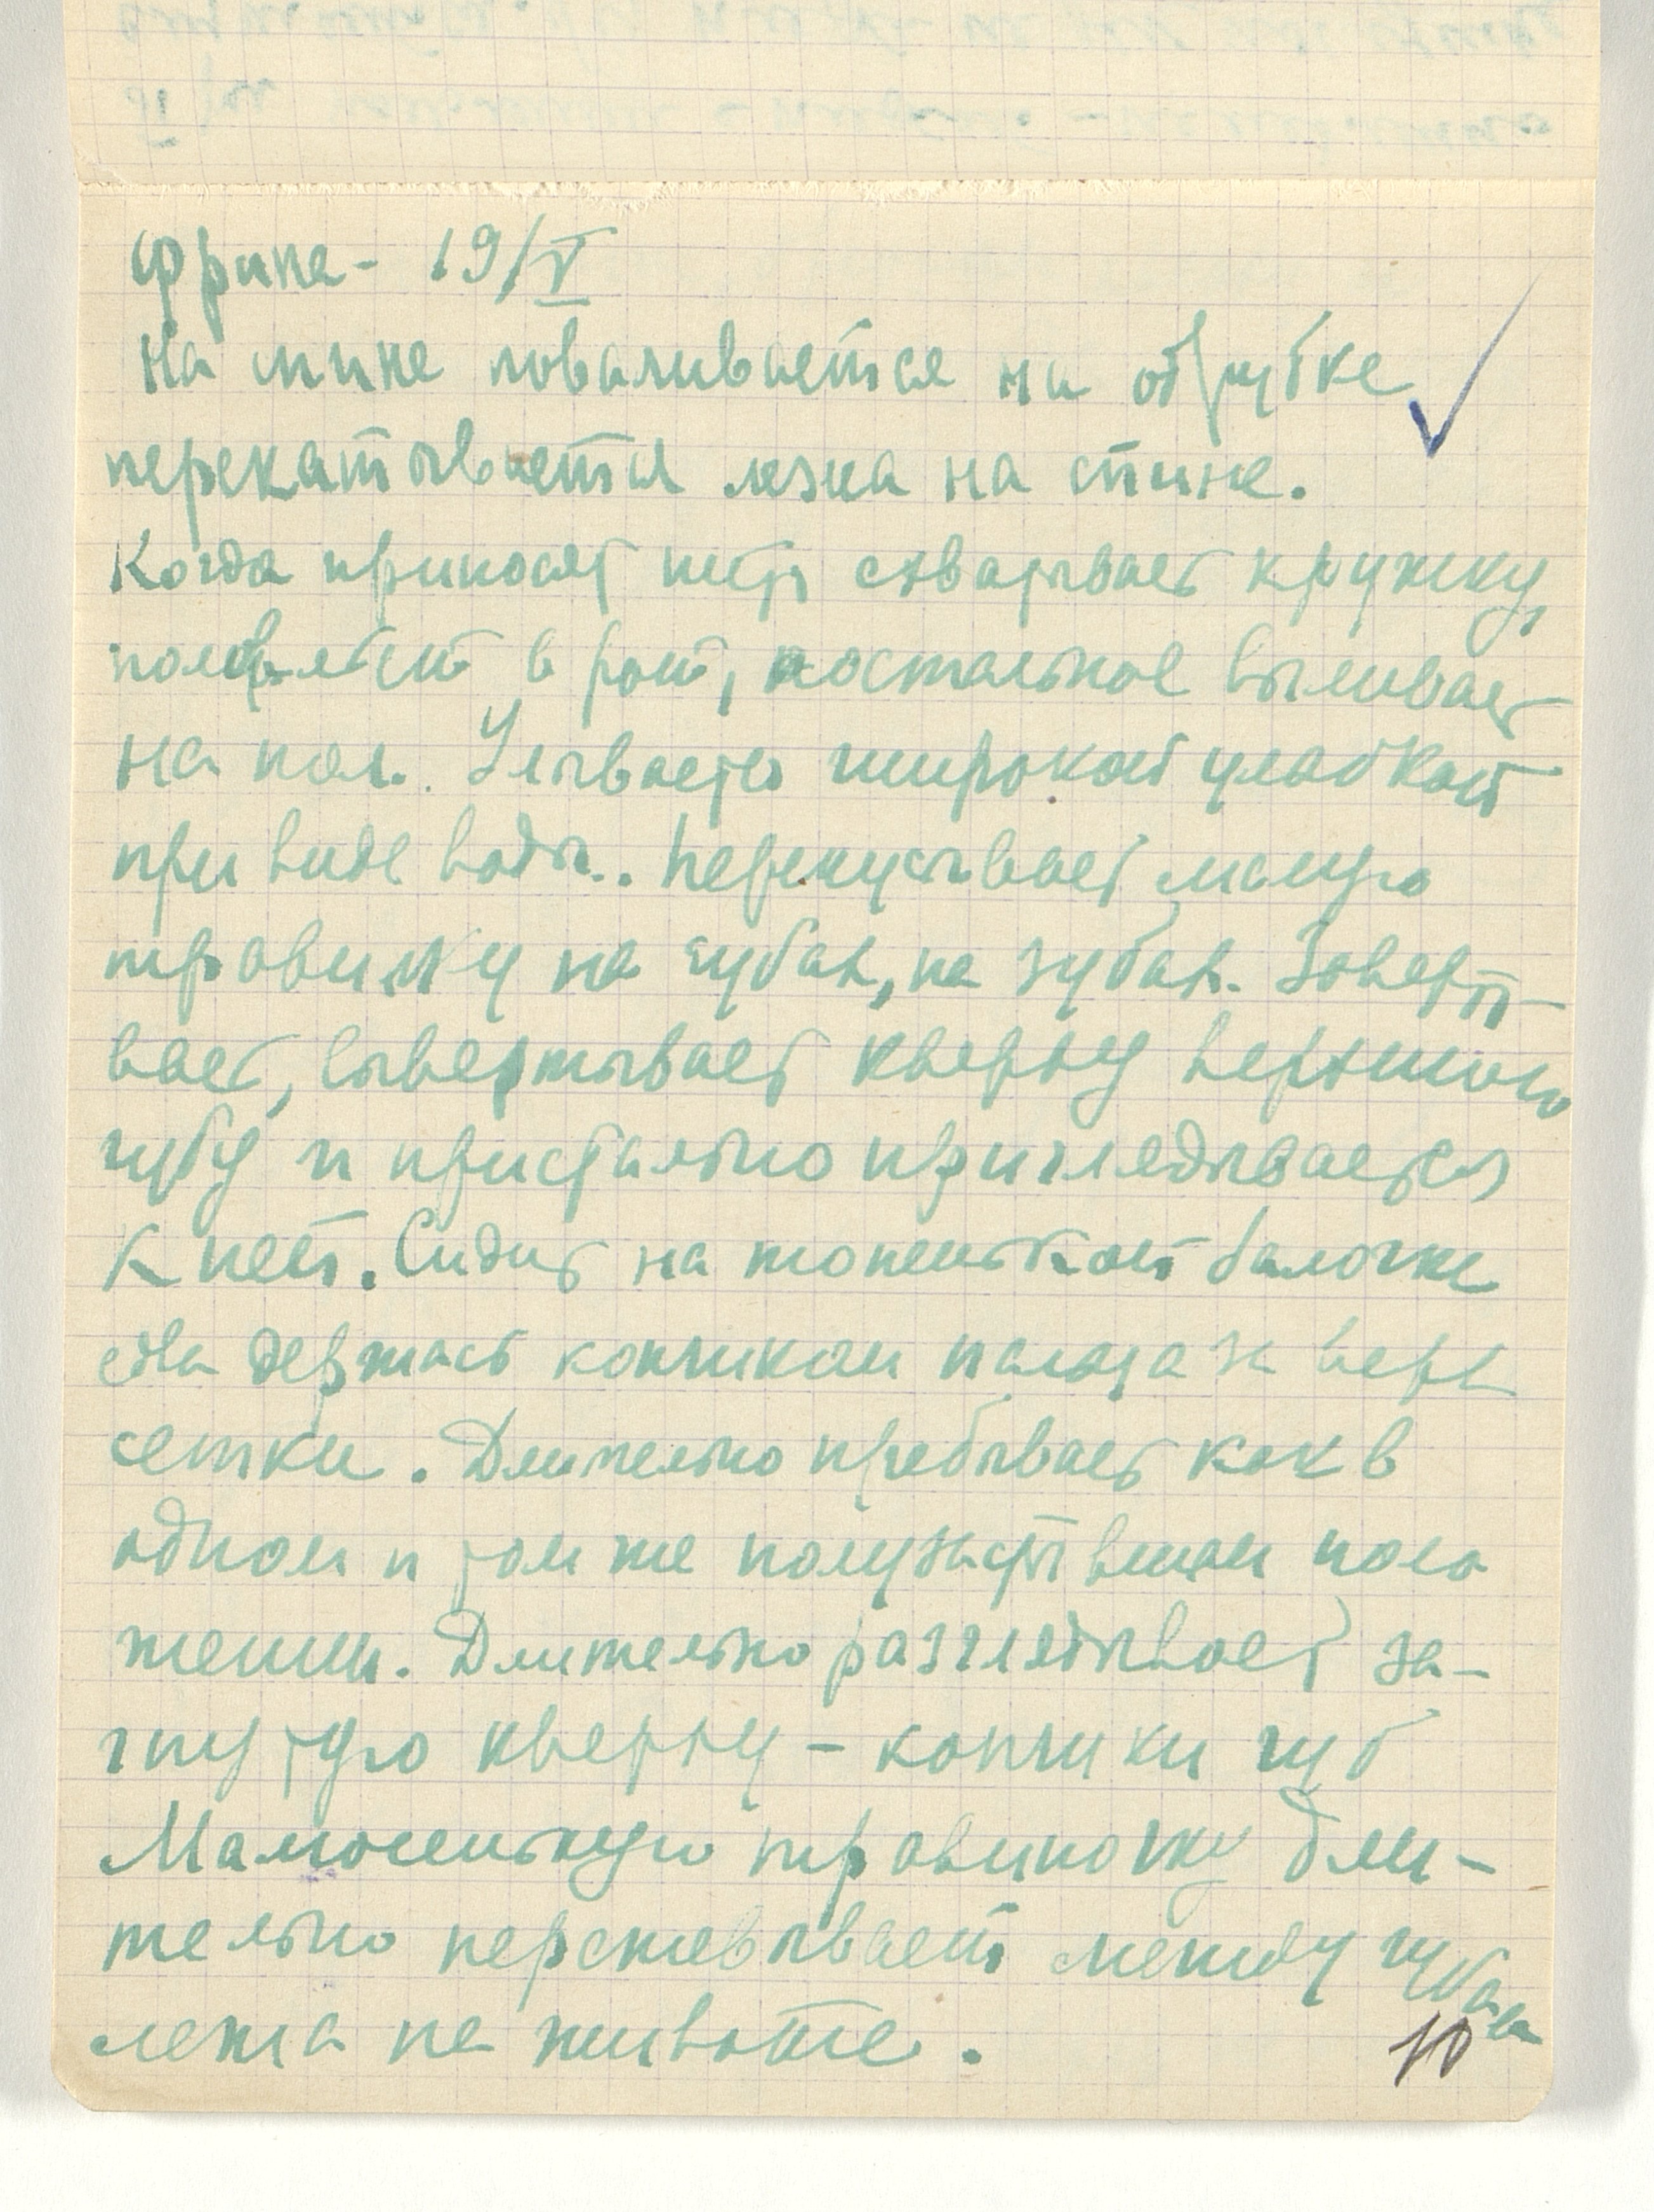 Фрина - 19/V
На спине поваливается на обрубке
перекатывается лежа на спине.
Когда приносят пить схватывает кружку,
в рот, остальное выливает
на пол. Улыбается широкой улыбкой
при виде воды.. Перекусывает малую
травинку на губах, на зубах. Заверты-
вает, вывертывает кверху верхнюю
губу и пристально приглядывается
к ней. Сидит на тоненькой балочке
едва держась кончиком пальца за верх
сетки. Длительно пребывает как в
одном и том же полузастывшем поло
жении. Длительно разглядывает за-
гнутую кверху - кончики губ
Малюсенькую травиночку дли-
тельно пережевывает между губами
лежа на животе.
10